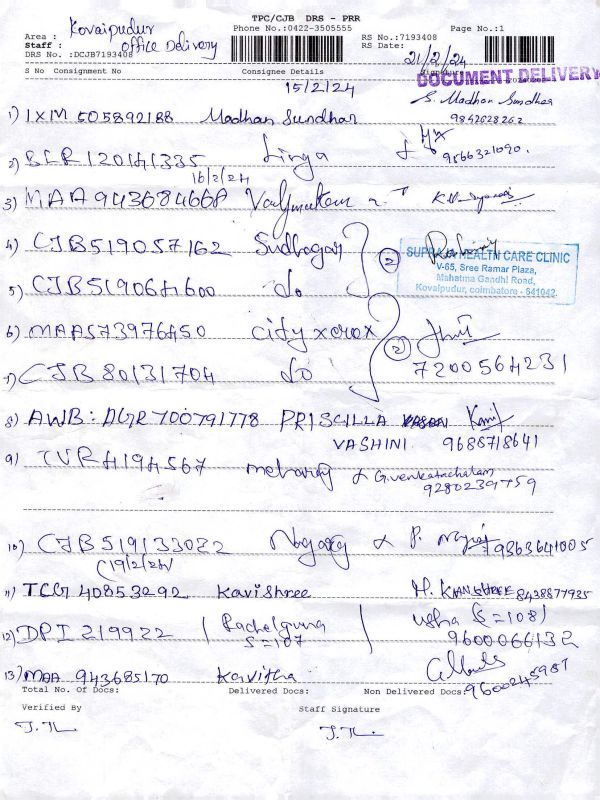 TPC/CJB DRS - PRR
Area : Kovaipudur
Phone No.:0422-3505555
RS No.:7193408
Page No.:1
Staff : office Delivery
RS Date: 21/2/24
DRS No :DCJB7193408
S No Consignment No Consignee Details Signature
DOCUMENT DELIVERY
15/2/24
S. Madhan Sundhar
1) IXM 505892188 Madhan Sundhar 9842628262
2) BLR120141335 Linga & 9566321090.
16/2/24
3) MAA 943684668
4) CJB519057162 Sudhagar (2)
SUPRAJA HEALTH CARE CLINIC
V-65, Sree Ramar Plaza,
Mahatma Gandhi Road,
Kovaipudur, coimbatore - 641042.
5) CJB519064600 do
6) MAA573976450 city xerox (2)
7) CJB80131704 do 7200564231
8) AWB: AGR700791778 PRISCILLA
VASHINI 9688718641
9) TVR4194567 & G.venkatachalam
9280239759
10) CJB519133022 Nagaraj & P. Nagaraj 9363641005
(19/2/24)
11) TCG 40853292 Kavishree H. KAVISHREE 8438877935
12) DPI 219922 Rachelguna usha S=108)
S=107 9600066132
13) MAA 943685170 Kavitha 9600245987
Total No. Of Docs: Delivered Docs: Non Delivered Docs:
Verified By Staff Signature